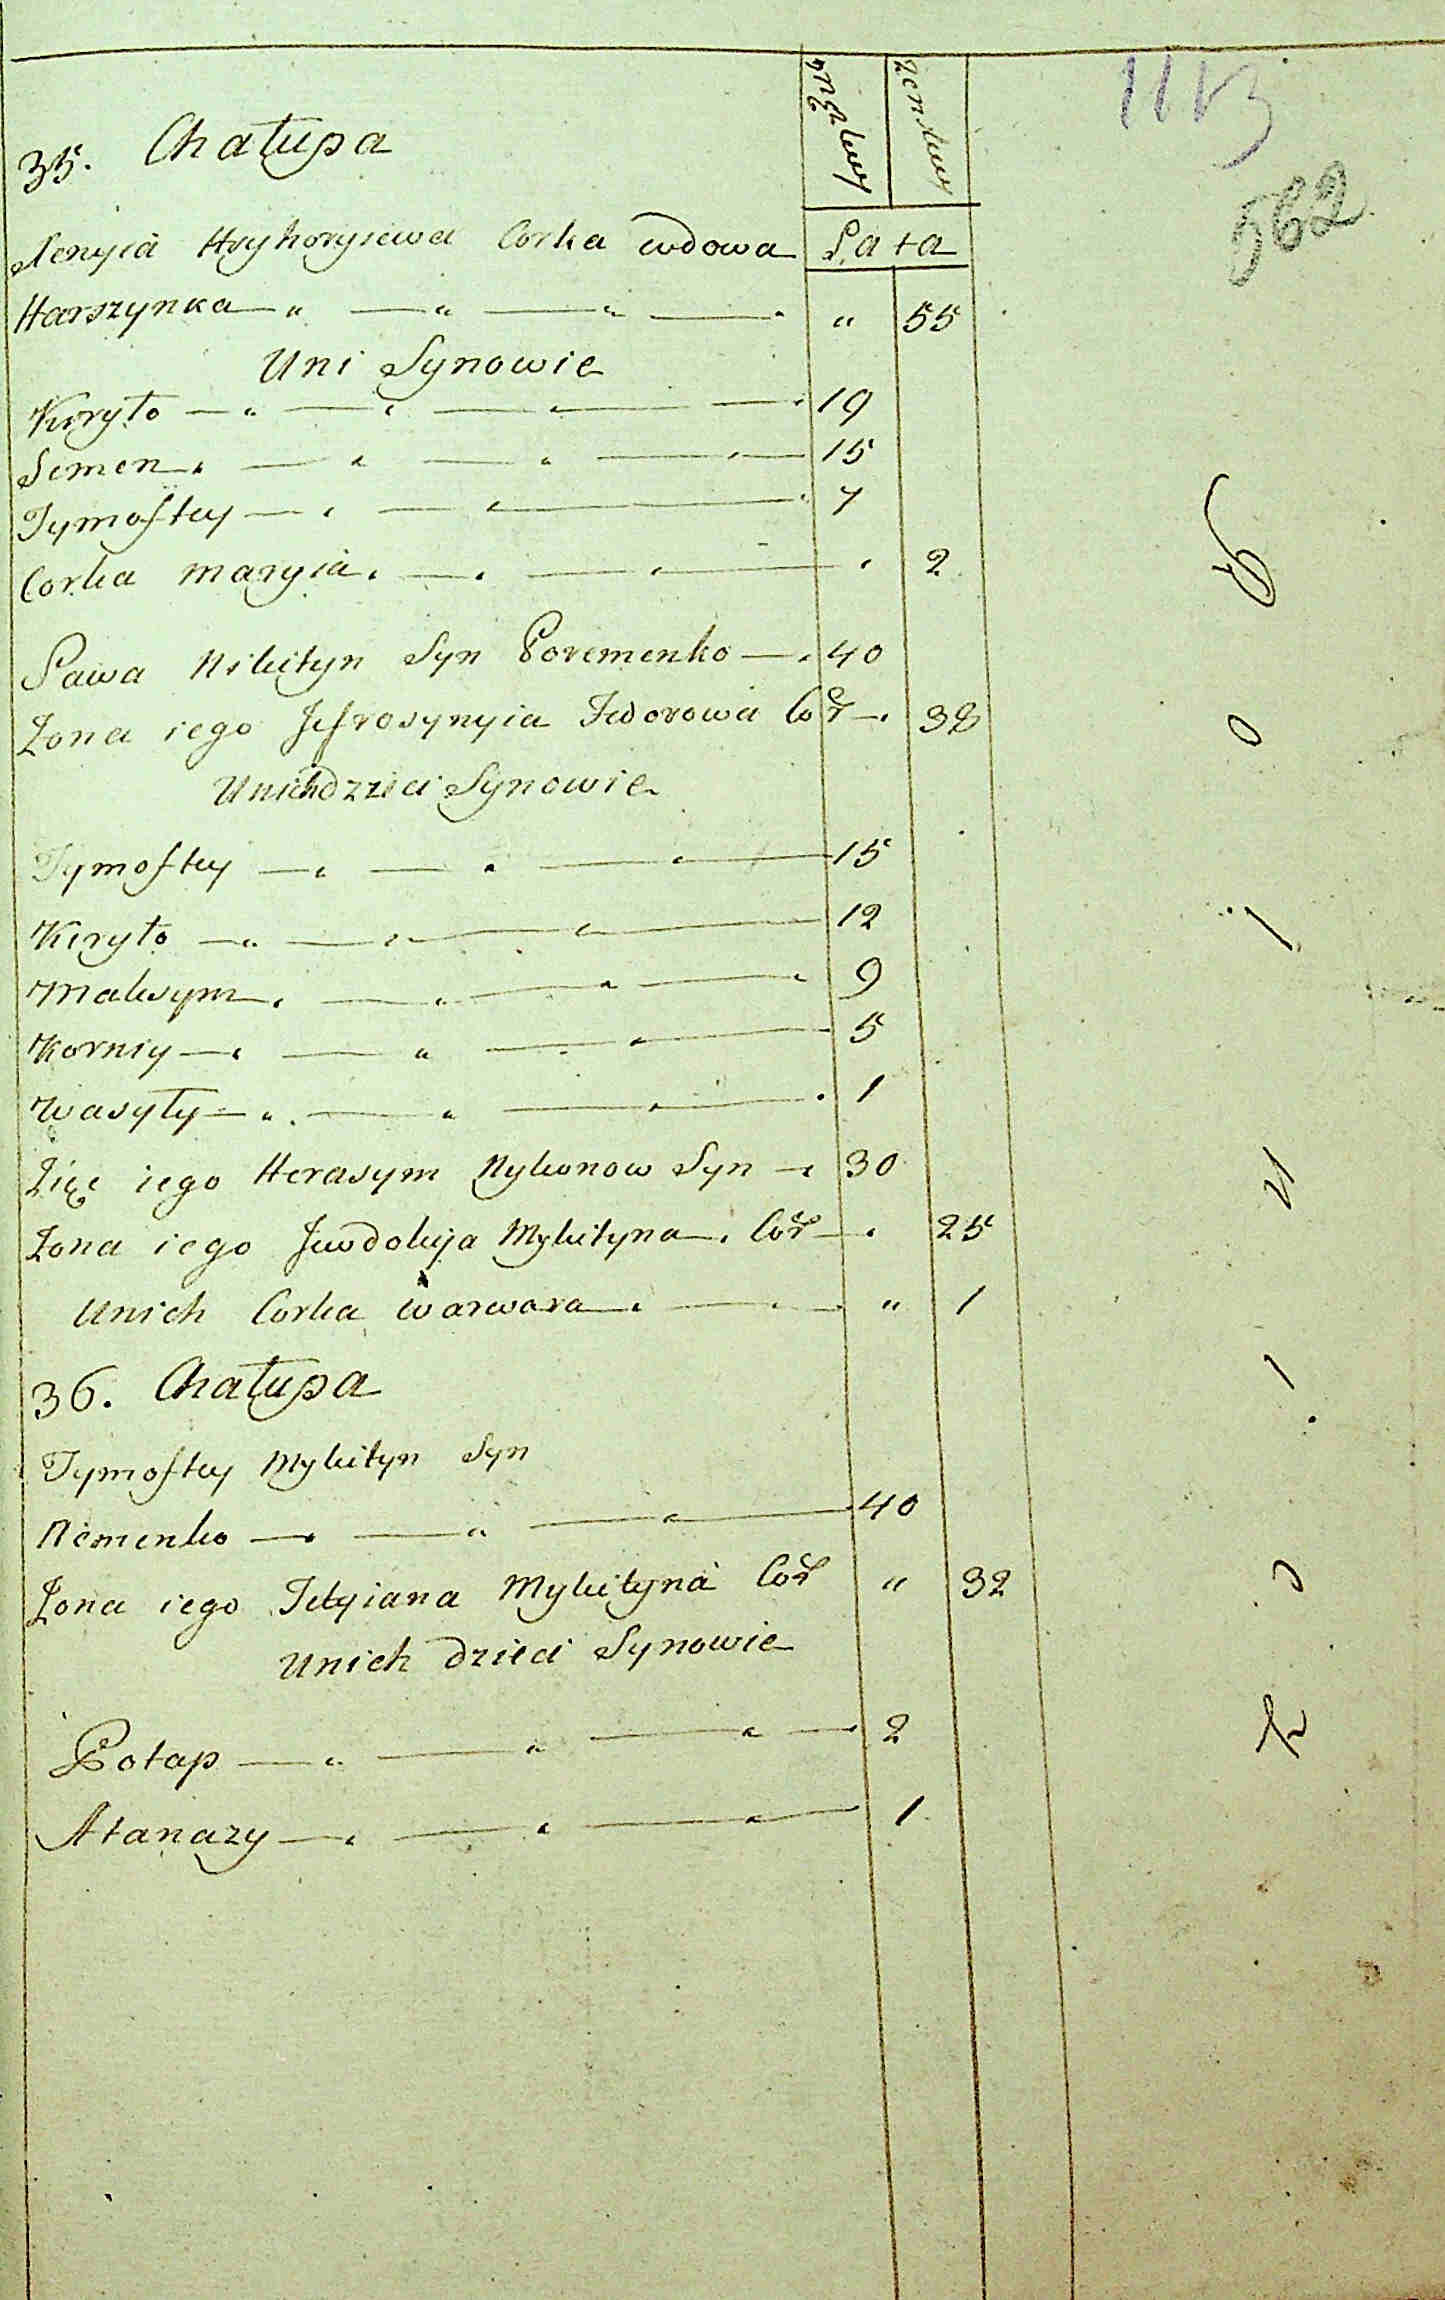 1113
562
męzkey
zenskey
35. Chałupa
Lata
Xenyia Hryhoryiewa Corka wdowa
Harszynka — „ — „ — „ — „ 55
Uni Synowie
Kiryło — „ — „ — „ — 19
Semen „ — „ — „ — 15
Tymoftey — „ — „ — 7
Corka Maryia „ — „ — „ — „ 2
Sawa Nikityn Syn Poremenko — 40
Żona iego Jefrosynyia Fedorowa Cor — „ 38
Unich dzieci Synowie
Tymoftey — „ — „ — „ — 15
Kiryło — „ — „ — „ — 12
Maksym „ — „ — „ — 9
Korniy — „ — „ — „ — 5
Wasyły — „ — „ — „ — 1
Zięc iego Herasym Nykonow Syn — 30
Żona iego Jewdokija Mykityna Cor — „ 25
Unich Corka Warwara „ — „ — „ 1
36. Chałupa
Tymoftey Mykityn Syn
Remenko — „ — „ — „ — 40
Żona iego Tetyiana Mykityna Cor „ 32
Unich dzieci Synowie
Potap — „ — „ — „ — 2
Atanazy — „ — „ — „ — 1